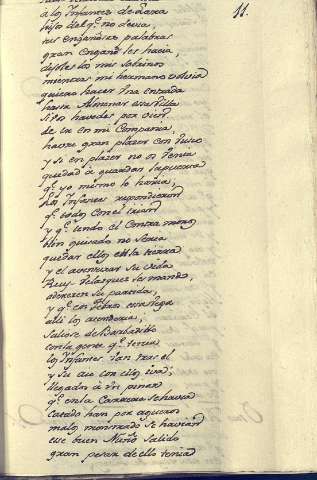 11.
a los Infantes de Lara
hijo del qe. no devia
sus engañosas palabras
gran engaño les hacia,
dijoles los mis sobrinos
mientras mi hermano volvia
quiero hacer una entrada
hasta Almenar essa villa
si os havedes por
de ir en mi Compania,
havre gran plazer con vusco
y si en plazer no os venia
quedad a guardar la
qe. yo mismo lo haria,
los Infantes respondieron
qe. todos con el irian
y qe. iendo el contra moros
bien guisado no seria
quedar ellos en la tierra
y el aventurar su vida
Ruy Velazquez les mando,
aderecen su partida,
y qe. en Febros essa Vega
alli los atenderia;
saliose de Barbadillo
con la gente qe. tenia
los Infantes van tras el
y su aio con ellos iva;
llegados à un pinar
qe. en la Carrera se havia
Catado han por agueros
malos monstrado se havian
ese buen Nuño Salido
gran pesar de ello tenia